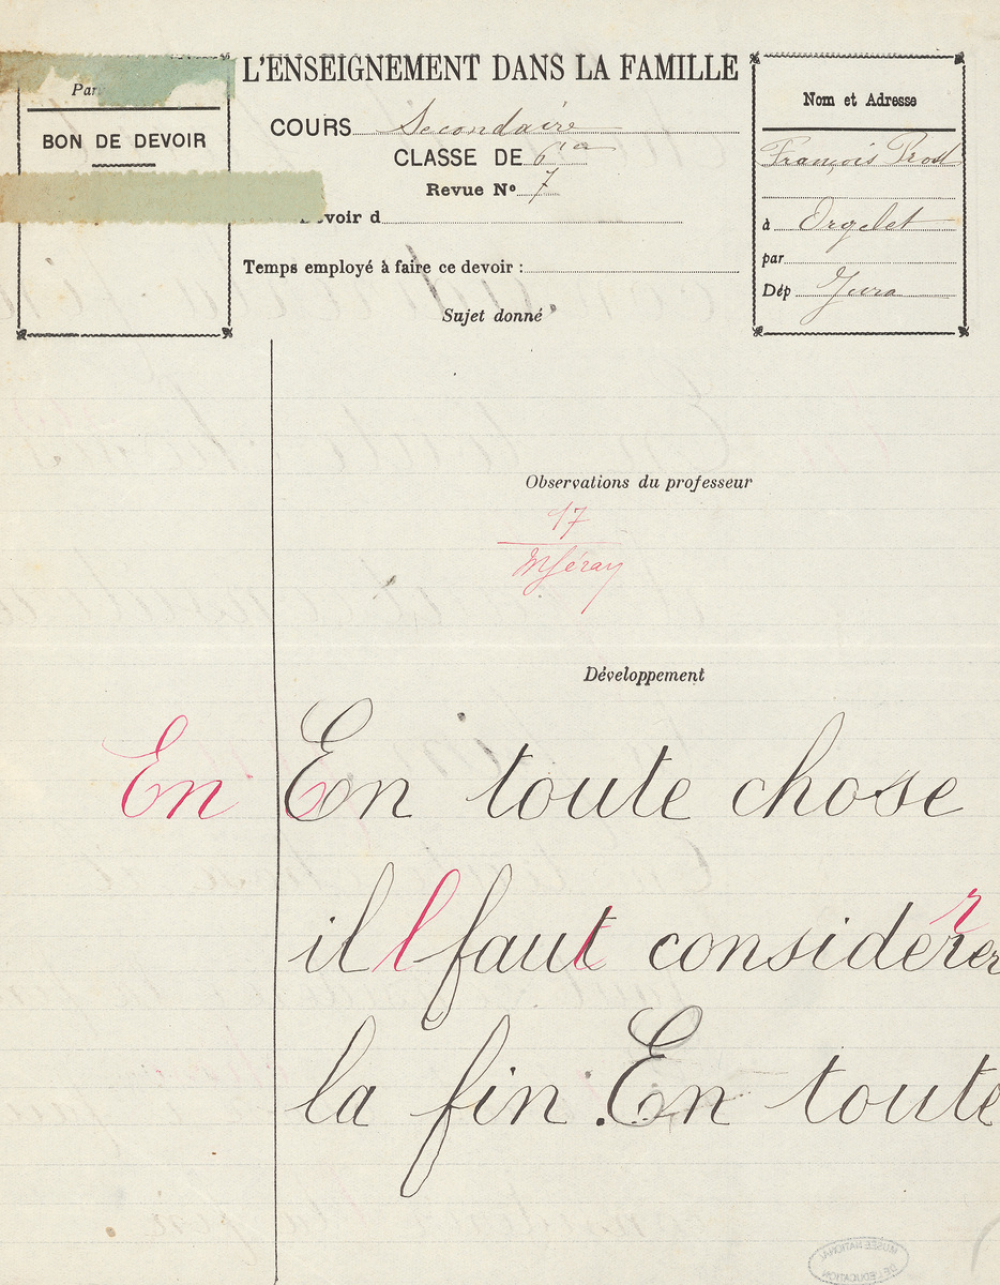 L'ENSEIGNEMENT DANS LA FAMILLE
BON DE DEVOIR
COURS Secondaire
CLASSE DE 6ième
Revue No 7
voir d
Temps employé à faire ce devoir :
Sujet donné
Nom et Adresse
François Prost
à Orgelet
par
Dép Jura
Observations du professeur
17
Développement
En En toute chose
il l faut t considérer r
la fin. En toute
MUSÉE NATIONAL
DE L'ÉDUCATION